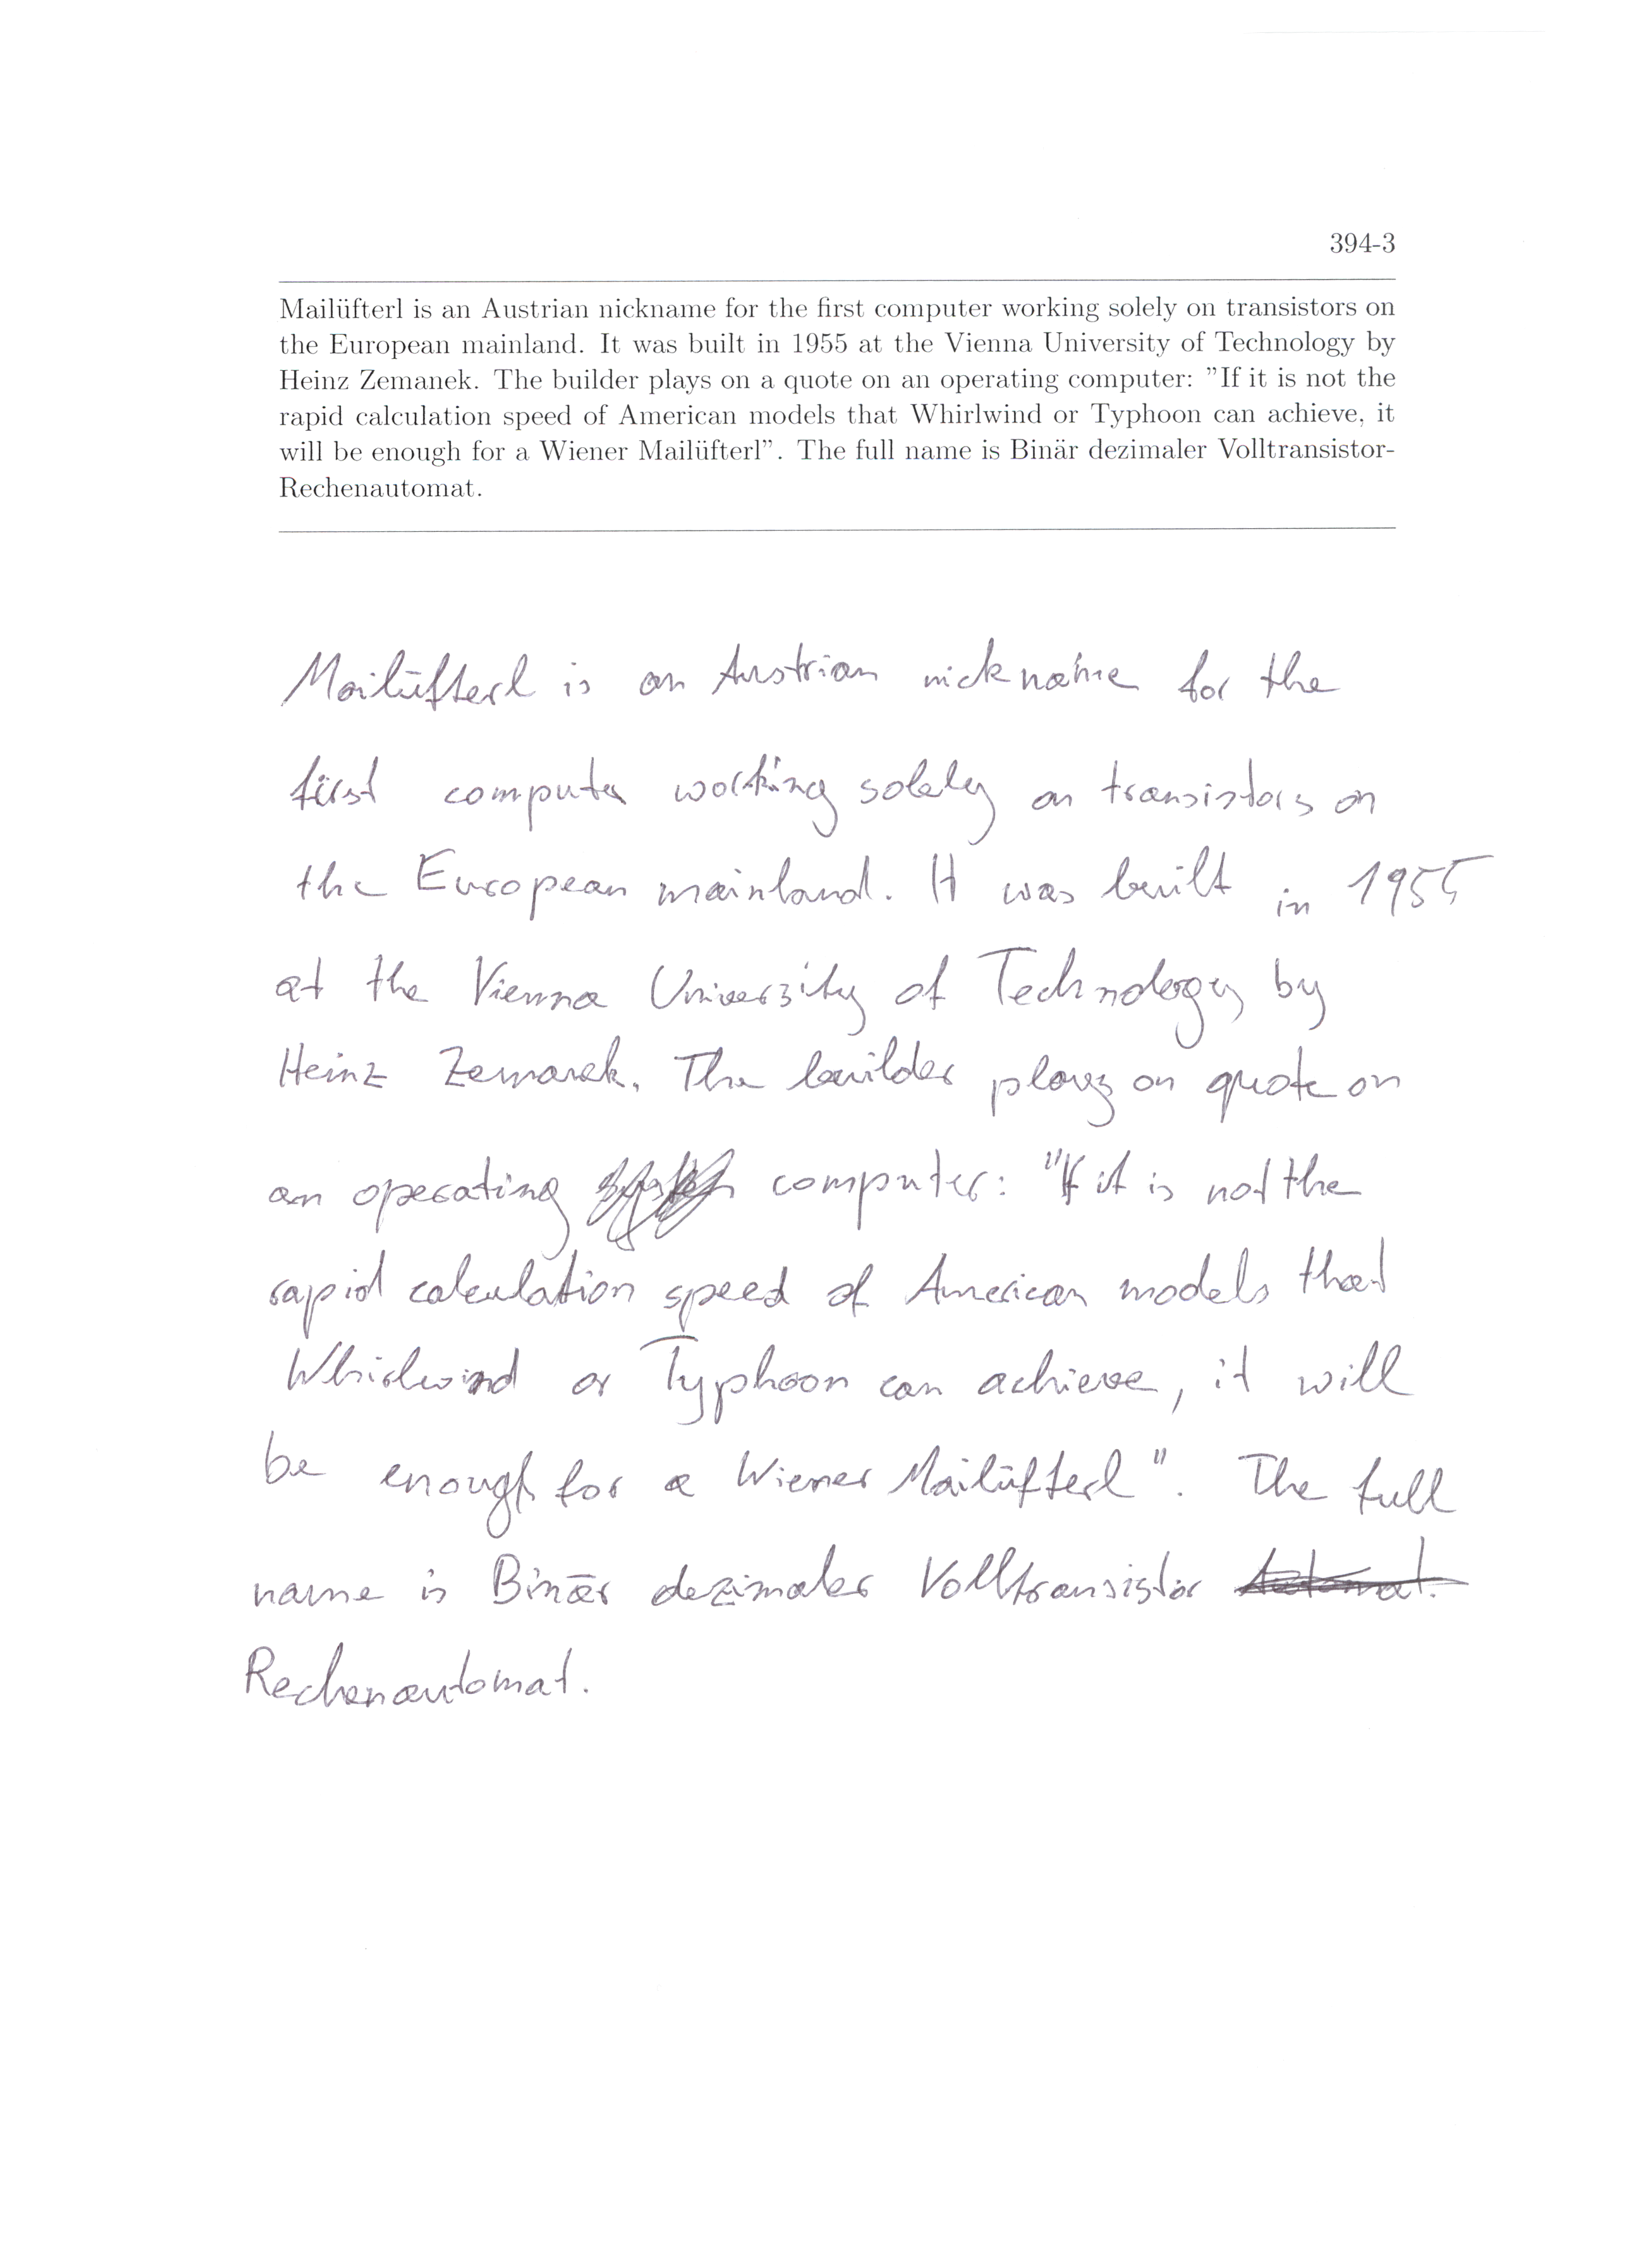 394-3
Mailüfterl is an Austrian nickname for the first computer working solely on transistors on
the European mainland. It was built in 1955 at the Vienna University of Technology by
Heinz Zemanek. The builder plays on a quote on an operating computer: "If it is not the
rapid calculation speed of American models that Whirlwind or Typhoon can achieve, it
will be enough for a Wiener Mailüfterl". The full name is Binär dezimaler Volltransistor-
Rechenautomat.
Mailüfterl is an Austrian nickname for the
first computer working solely on transistors on
the European mainland. It was built in 1955
at the Vienna University of Technology by
Heinz Zemanek. The builder plays on quote on
an operating computer: "If it is not the
rapid calculation speed of American models that
Whirlwind or Typhoon can achieve, it will
be enough for a Wiener Mailüfterl". The full
name is Binär dezimaler Volltransistor Automat.
Rechenautomat.